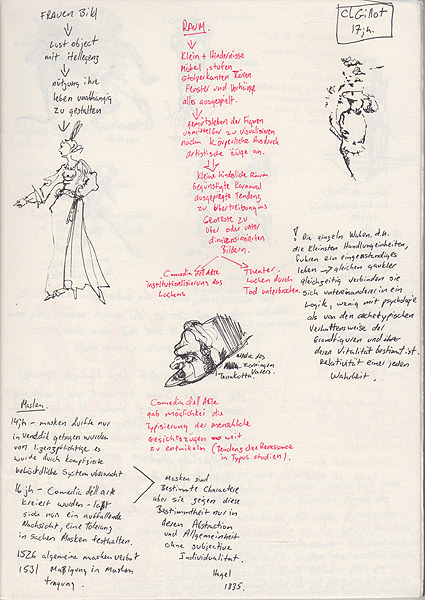 FRAUEN Bild
Lust object
mit itellegenz
nötzung ihre
leben unabhängig
zu gestalten
RAUM.
Klein + Hindernisse
Möbel, stufen
Stolperkanten Türen
Fenster und Vorhänge
alles ausgespelt.
der Figuren
unmittelbar zu visualisieren
nach Körperliche Ausdruck
artistische züge an.
Kleine hinderliche Raum
begünstigte Karneval
ausgeprägte Tendenz
zu übertreibungins
Groteste zu
über oder unter
dimensionierten
Bildern.
Comedia dell Arte
institutionalisierung des
Lachens
Theater.
Lachen durch
Tod unterbrochen.
Cl. Gillot
17.jh.
! Die einzeln Waben, d.h.
die kleinsten Handlungseinheiten,
führen ein eigenständiges
leben → gleichen gaukler
gleichzeitig verbinden sie
sich untereinander in ein
Logik, wenig mit psychologie
als von den archetypischen
Verhaltensweise der
Grundfiguren und über
deren Vitalität bestimt ist.
Relativität eines jeden
Wahrheit.
maske des
zornigen
Vaters.
Terrakotta
Comedia dell Arte
gab möglichkei die
Typisierung der menschliche
Gesichtszügen weit
zu entwikeln (Tendenz der Renessance
in Typus studien).
Masken
14jh - masken durfte nur
in Venedik getragen wurden
von es
wurde durch komplizirte
behördliche System überwacht
16.jh - Comedia dell arte
kreiert wurden - laßt
sich nur ein auffallende
Nachsicht, eine Tolerang
in sachen Masken festhalten.
1526 algemeine masken verbot
1531 Mäßigung in Masken
tragung.
Masken sind
Bestimmte Charactere
aber sie zeigen diese
Bestimmtheit nur in
deren Abstraction
und Allgemeinheit
ohne subjective
Individualität.
Hegel
1835.